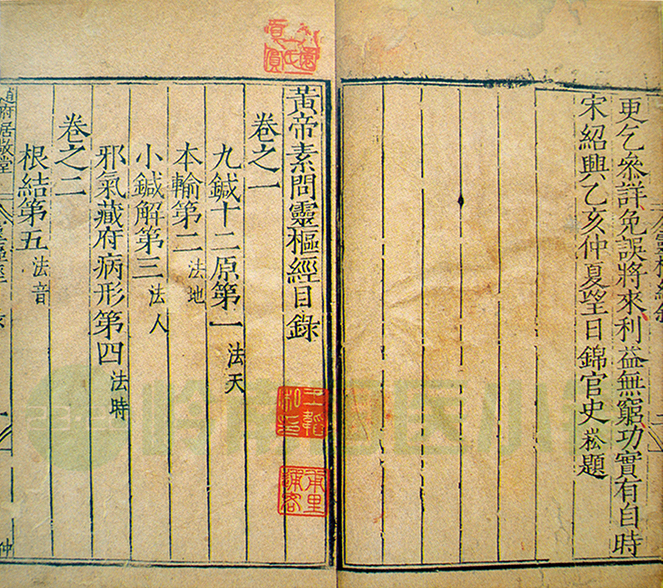 更乞參詳免誤將來利益無窮功實有自時
宋紹興乙亥仲夏望日錦官史崧題
黃帝素問靈樞經目錄
卷之一
九鍼十二原第一 法天
本輸第二 法地
小鍼解第三 法人
邪氣藏府病形第四 法時
卷之二
根結第五 法音
府居敬堂
甫里